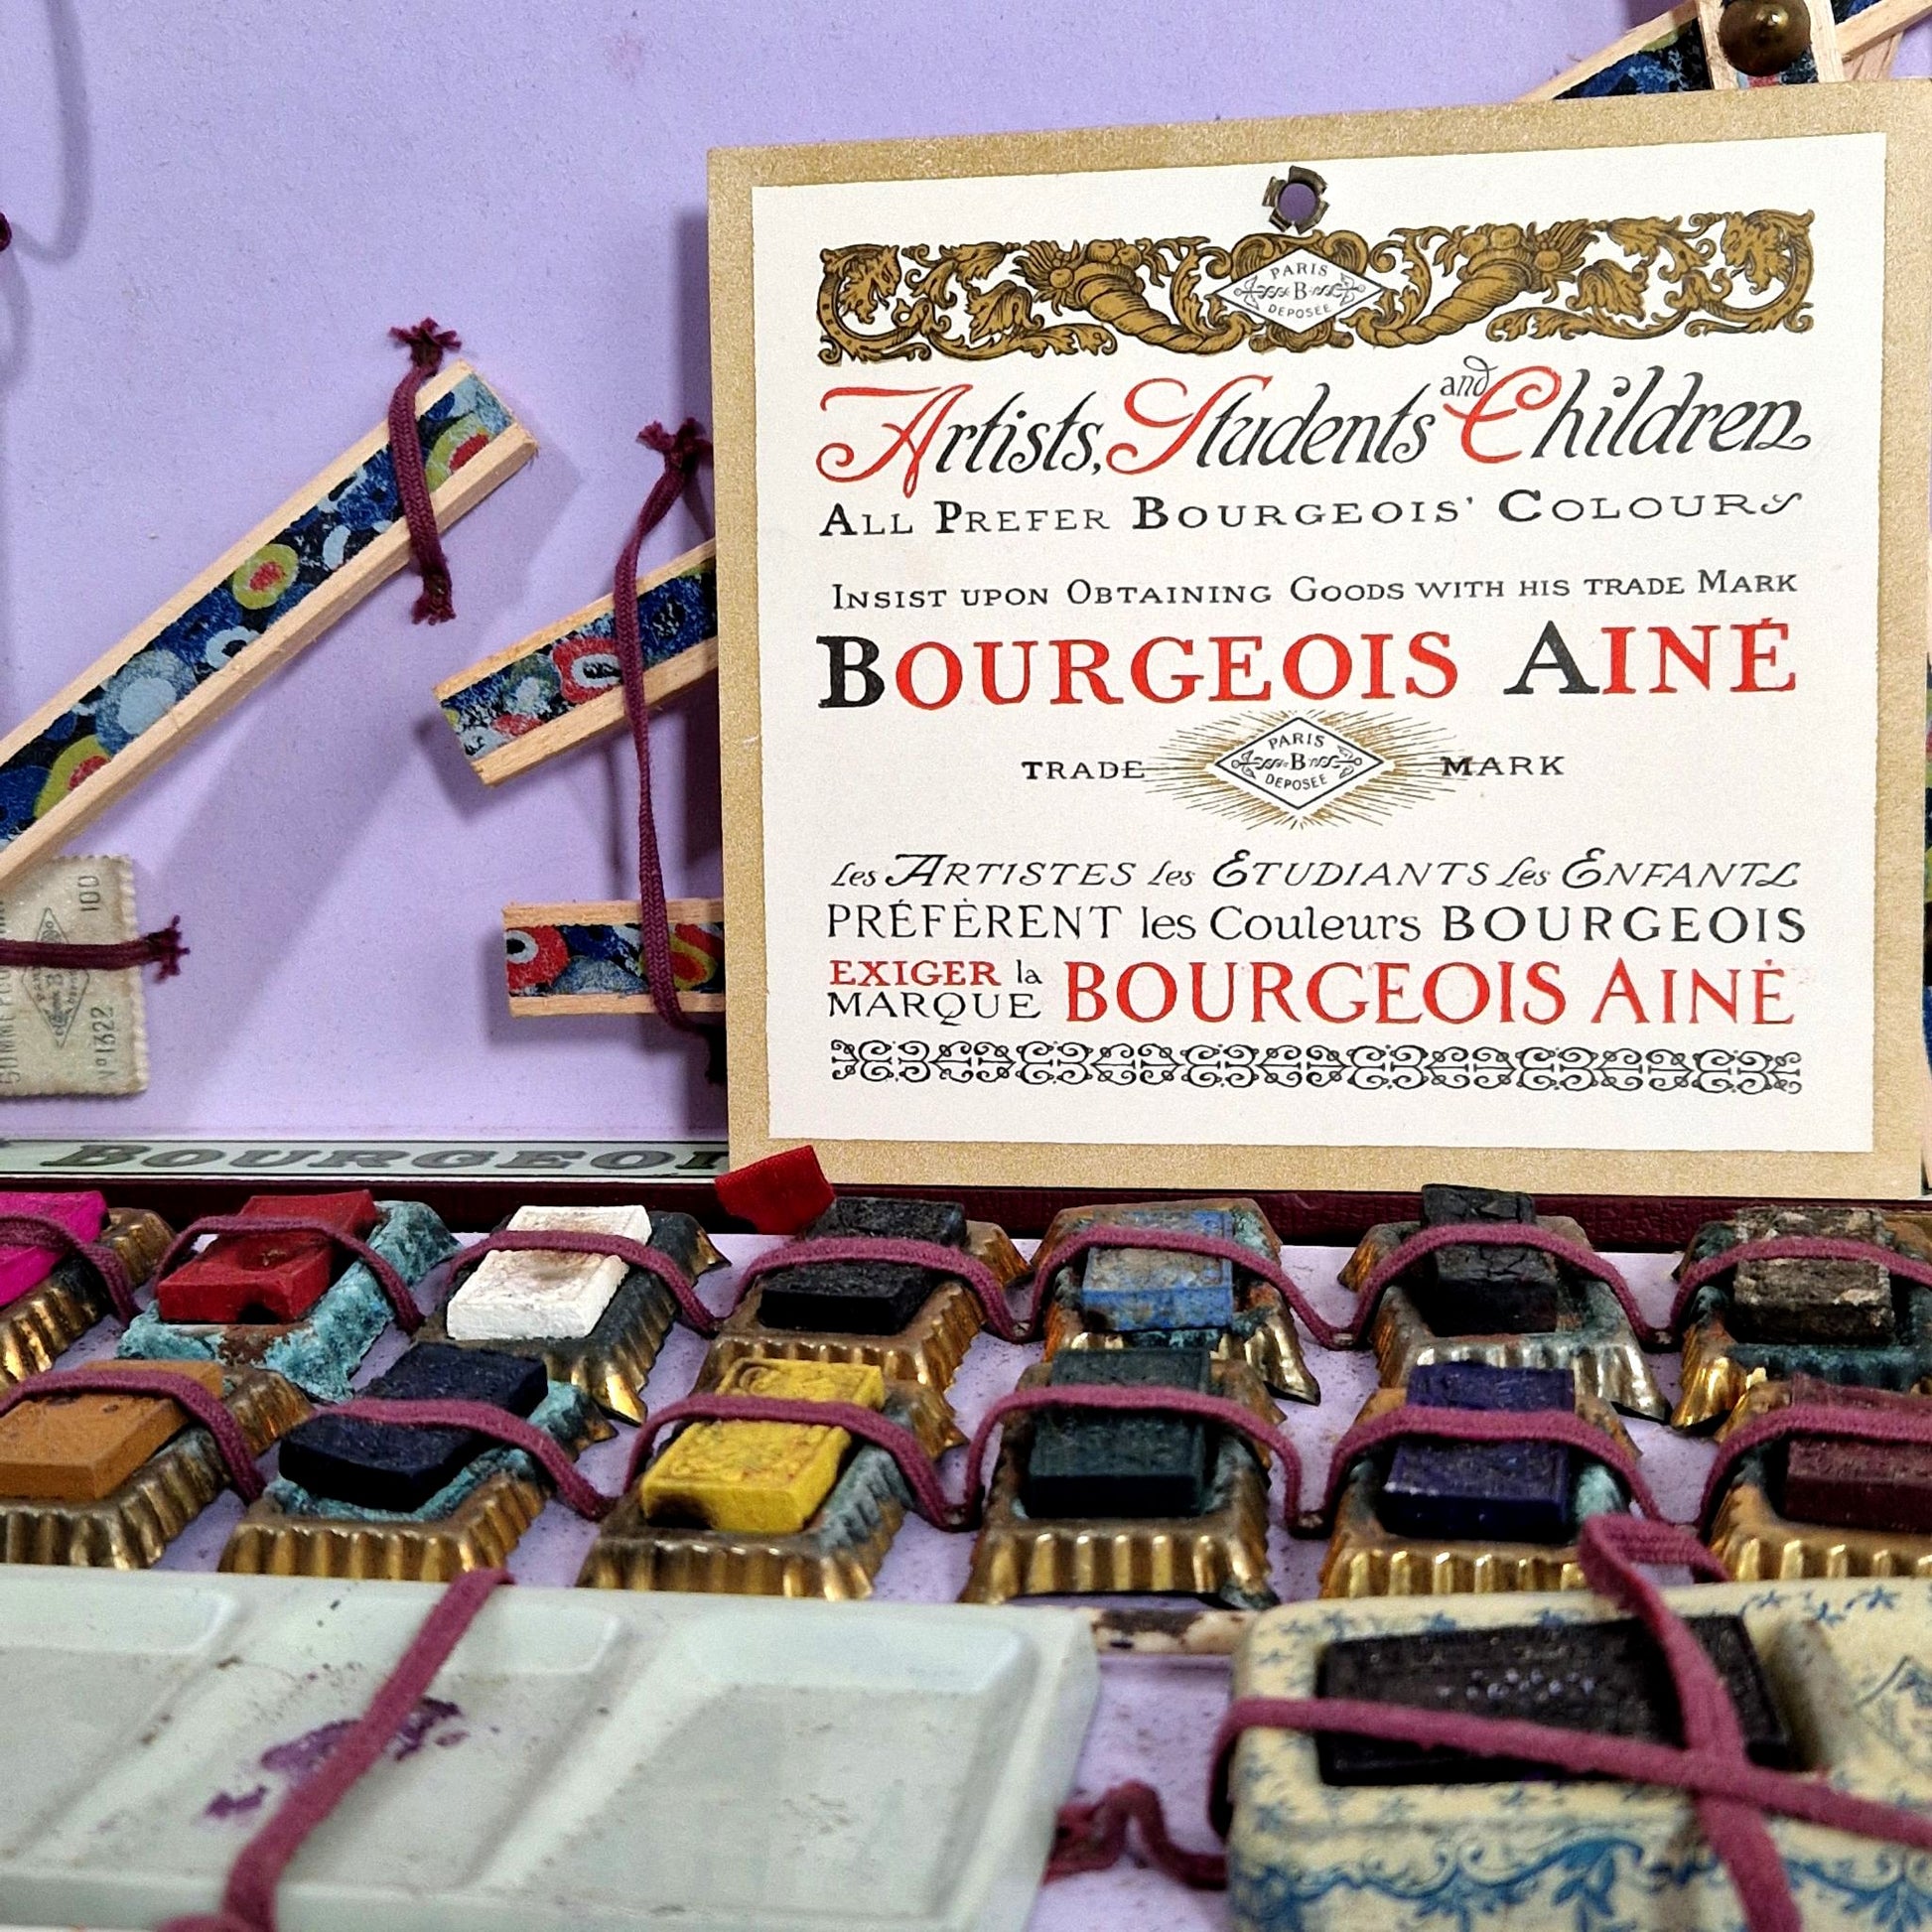 PARIS
B
DEPOSÉE
Artists, Students and Children
ALL PREFER BOURGEOIS' COLOURS
INSIST UPON OBTAINING GOODS WITH HIS TRADE MARK
BOURGEOIS AINÉ
TRADE MARK
PARIS
B
DEPOSÉE
Les ARTISTES les ETUDIANTS les ENFANTS
PRÉFÈRENT les Couleurs BOURGEOIS
EXIGER la
MARQUE BOURGEOIS AINÉ
100
Nº 1322
BOURGEOI